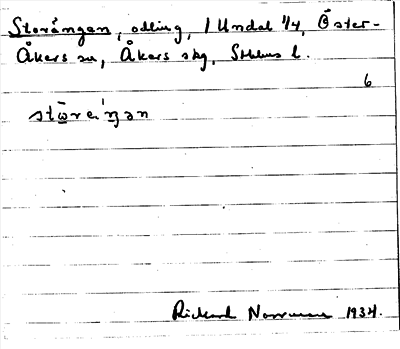 Storängen, odling, 1 Undal 1/4, Öster-
Åkers sn, Åkers skg, Sthlms l.
6
störeŋan
Rickard Norrman 1934.